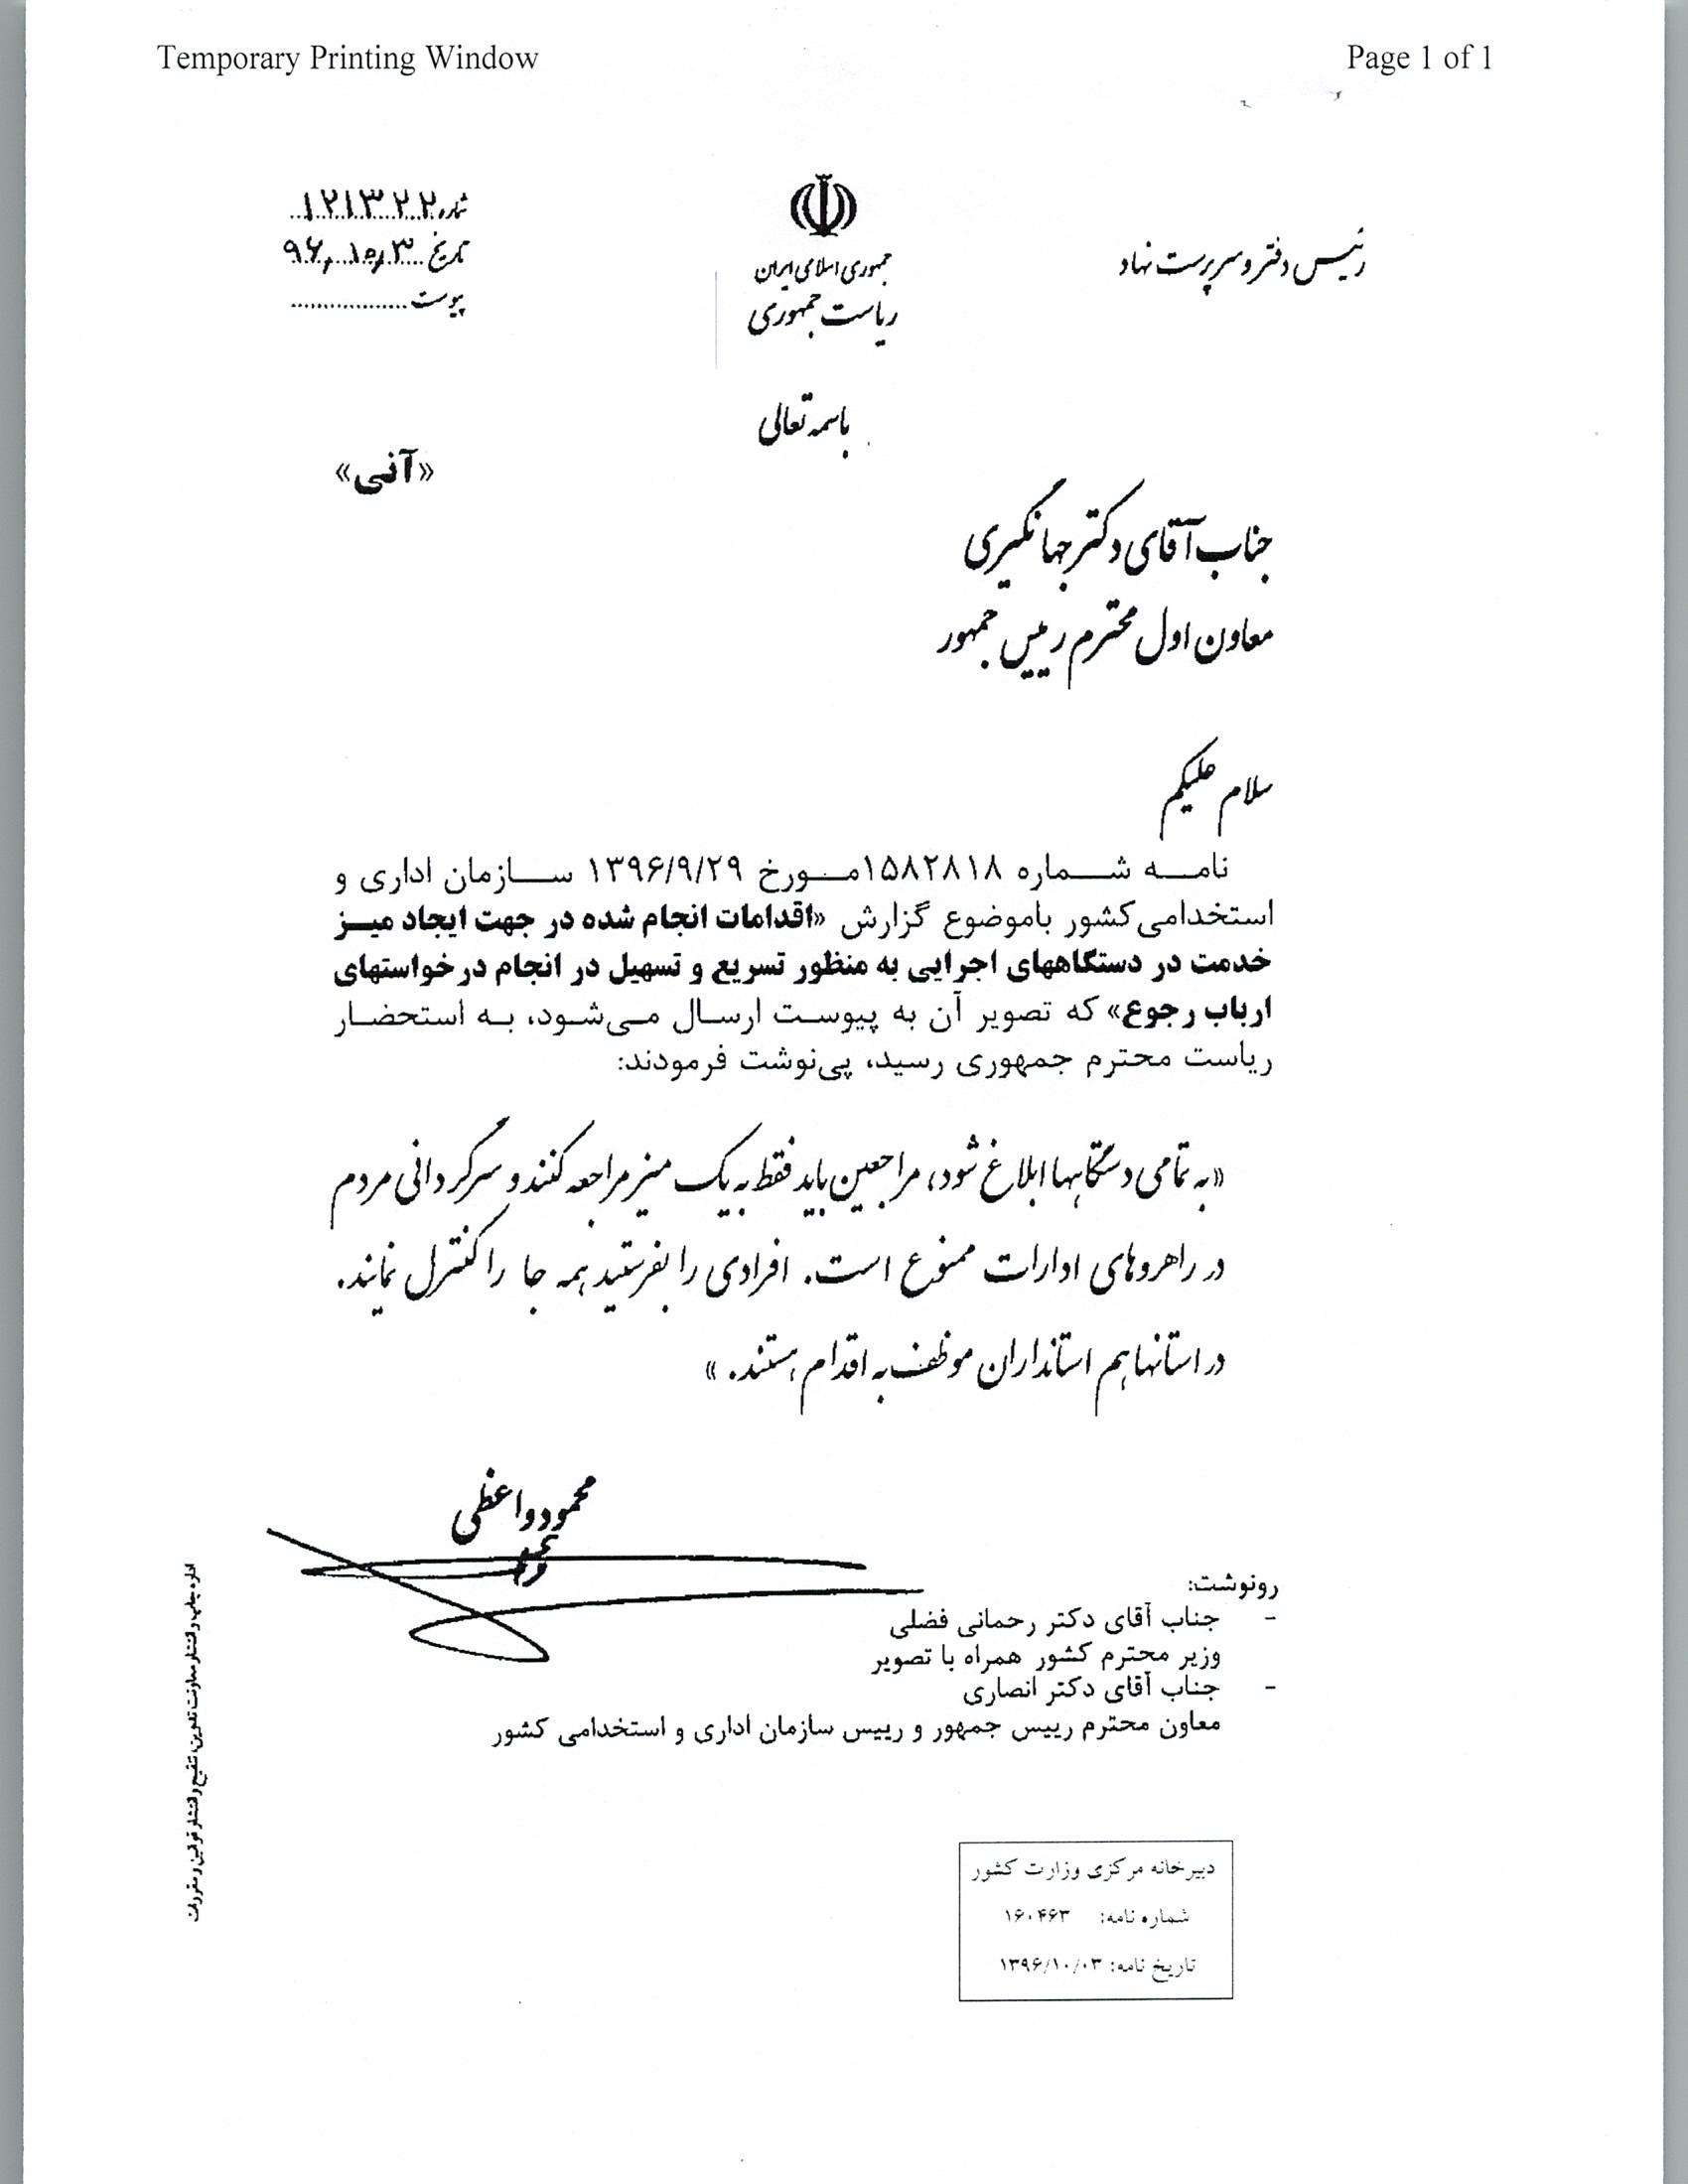 Temporary Printing Window
Page 1 of 1
رئیس دفتر و سرپرست نهاد
جمهوری اسلامی ایران
ریاست جمهوری
شماره ۱۲۱۳۲۲
تاریخ ۹۶,۱۰,۳
پیوست
باسمه تعالی
«آنی»
جناب آقای دکتر جهانگیری
معاون اول محترم رییس جمهور
سلام علیکم
نامه شماره ۱۵۸۲۸۱۸مورخ ۱۳۹۶/۹/۲۹ سازمان اداری و
استخدامی کشور باموضوع گزارش «اقدامات انجام شده در جهت ایجاد میز
خدمت در دستگاههای اجرایی به منظور تسریع و تسهیل در انجام درخواستهای
ارباب رجوع» که تصویر آن به پیوست ارسال می‌شود، به استحضار
ریاست محترم جمهوری رسید، پی‌نوشت فرمودند:
«به تمامی دستگاهها ابلاغ شود، مراجعین باید فقط به یک میز مراجعه کنند و سرگردانی مردم
در راهروهای ادارات ممنوع است. افرادی را بفرستید همه جا را کنترل نمایند.
در استانها هم استانداران موظف به اقدام هستند.»
محمود واعظی
رونوشت:
- جناب آقای دکتر رحمانی فضلی
وزیر محترم کشور همراه با تصویر
- جناب آقای دکتر انصاری
معاون محترم رییس جمهور و رییس سازمان اداری و استخدامی کشور
اداره چاپ و انتشار معاونت تدوین، تنقیح و انتشار قوانین و مقررات
دبیرخانه مرکزی وزارت کشور
شماره نامه: ۱۶۰۴۶۳
تاریخ نامه: ۱۳۹۶/۱۰/۰۳